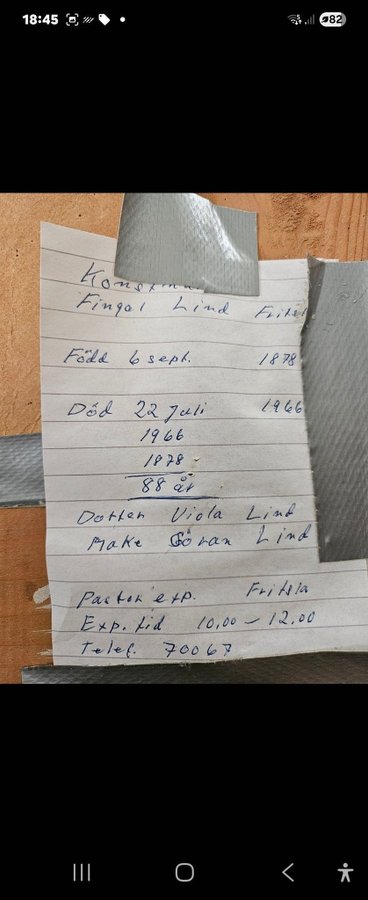 18:45
82
Fingal Lind Fritsla
Född 6 sept. 1878
Död 22 juli 1966
1966
1878
88 år
Dotter Viola Lind
Make Göran Lind
Pastor exp. Fritsla
Exp. tid 10,00 - 12.00
Telef. 70067